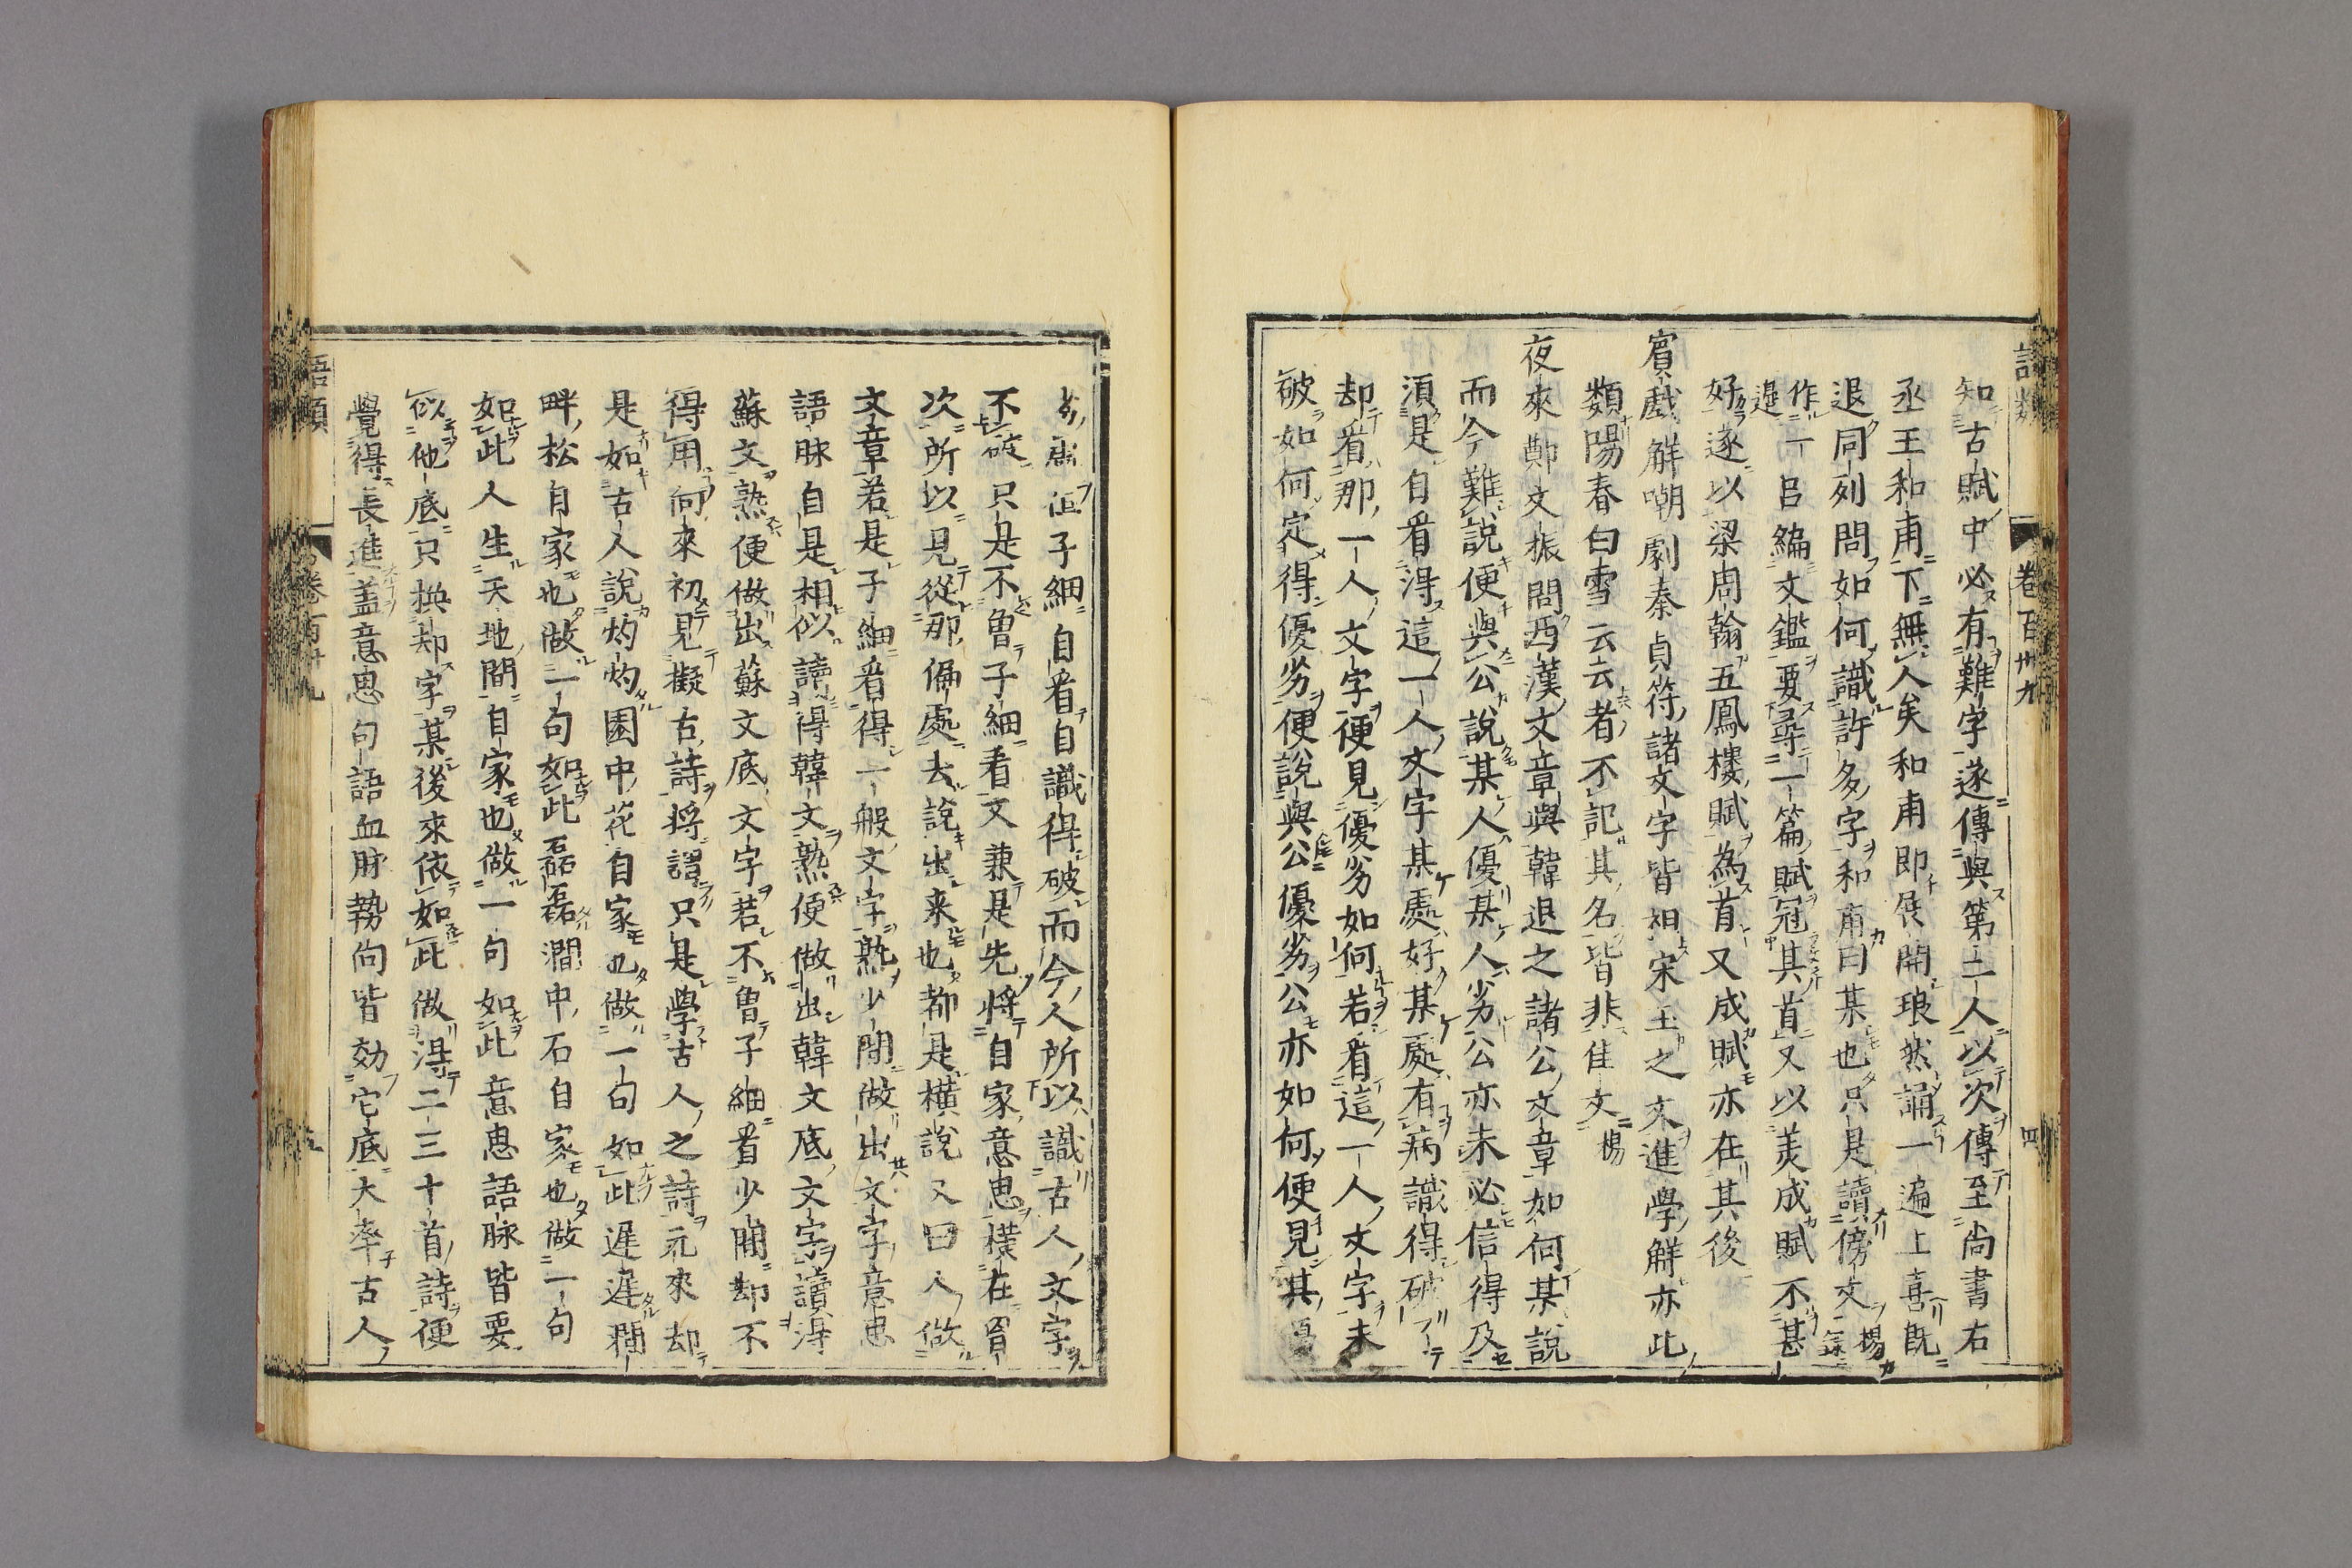 語類 卷百卅九 四
知古賦中必有難字遂傳與第二人以次傳至尚書右
丞王和甫下無人矣和甫即展開琅然誦一遍上喜既
退同列問如何識許多字和甫曰某也只是讀傍文楊錄
作一邉呂編文鑑要尋一篇賦冠其首又以美成賦不甚
好遂以梁周翰五鳳樓賦為首又成賦亦在其後
賓戲解嘲劇秦貞符諸文字皆祖宋玉之文進學觧亦此
類陽春白雪云云者不記其名皆非佳文楊
夜來鄭文振問西漢文章與韓退之諸公文章如何某說
而今難說便與公說某人優某人劣公亦未必信得及
須是自看得這一人文字某處好某處有病識得破
却看那一人文字便見優劣如何若看這一人文字未
破如何定得優劣便說與公優劣公亦如何便見其優
劣處但子細自看自識得破而今人所以識古人文字
不破只是不曾子細看又兼是先將自家意思橫在胷
次所以見從那偏處去說出来也都是橫說又曰人做
文章若是子細看得一般文字熟少間做出文字意思
語脉自是相似讀得韓文熟便做出韓文底文字讀得
蘇文熟便做出蘇文底文字若不曾子細看少間却不
得用向來初見擬古詩將謂只是學古人之詩元來却
是如古人說灼灼園中花自家也做一句如此遲遲㵎
畔松自家也做一句如此磊磊澗中石自家也做一句
如此人生天地間自家也做一句如此意思語脉皆要
似他底只换却字某後來依如此做得二三十首詩便
覺得長進盖意思句語血脉勢向皆効它底大率古人
語類 卷百卅九